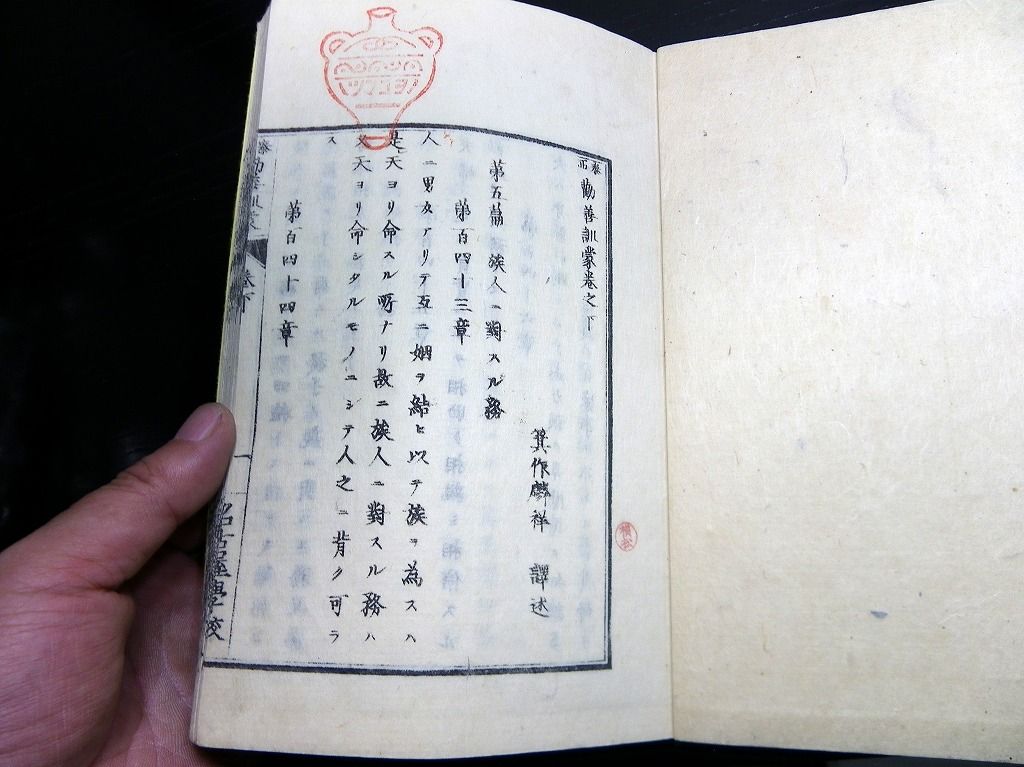 泰西勧善訓蒙巻之下
箕作麟祥 譯述
第五篇 族人ニ對スル務
第百四十三章
人ニ男女アリテ互ニ姻ヲ結ヒ以テ族ヲ為スハ
是天ヨリ命スル所ナリ故ニ族人ニ對スル務ハ
又天ヨリ命シタルモノニシテ人之ニ背ク可ラ
ス
第百四十四章
巻下
一
名古屋學校